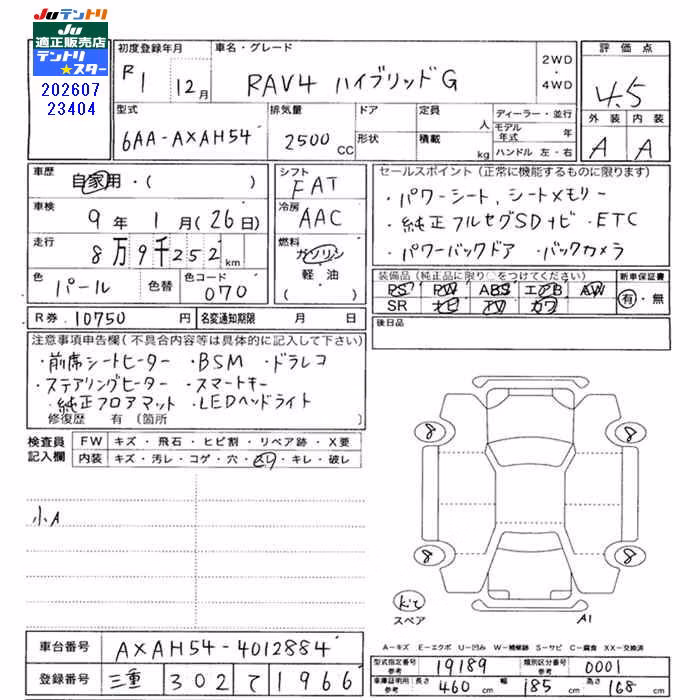 JUテントリ
JU
適正販売店
テントリ
★スター
202607
23404
初度登録年月
R1 12月
車名・グレード
RAV4 ハイブリッドG
2WD
・
4WD
評価点
4.5
外装 内装
A A
型式
6AA-AXAH54
排気量
2500 CC
ドア
形状
定員 人
積載 kg
ディーラー・並行
モデル年式 年
ハンドル 左・右
車歴
自家用・( )
車検
9年1月(26日)
走行
8万9千252km
色
パール
色替
色コード
070
シフト
FAT
冷房
AAC
燃料
ガソリン
軽・油
( )
セールスポイント(正常に機能するものに限ります)
・パワーシート、シートメモリー
・純正フルセグSDナビ・ETC
・パワーバックドア ・バックカメラ
装備品(純正品に限り○をつけてください)
PS PW ABS エアB AW
SR ナビ TV カワ
新車保証書
有・無
後日品
R券.10750円
名変通知期限 月 日
注意事項申告欄(不具合内容等は具体的に記入して下さい)
・前席シートヒーター ・BSM ・ドラレコ
・ステアリングヒーター ・スマートキー
・純正フロアマット ・LEDヘッドライト
修復歴 有(箇所 )
検査員
記入欄
FW キズ・飛石・ヒビ割・リペア跡・X要
内装 キズ・汚レ・コゲ・穴・スレ・キレ・破レ
小A
8 8
8 8
スペア
A1
A-キズ E-エクボ U-凹み W-補修跡 S-サビ C-腐食 XX-交換済
車台番号 AXAH54-4012884
登録番号 三重 302 て 1966
型式指定番号 参考 19189
類別区分番号 参考 0001
車庫証明用 参考 長さ 460 cm 幅 185 cm 高さ 168 cm